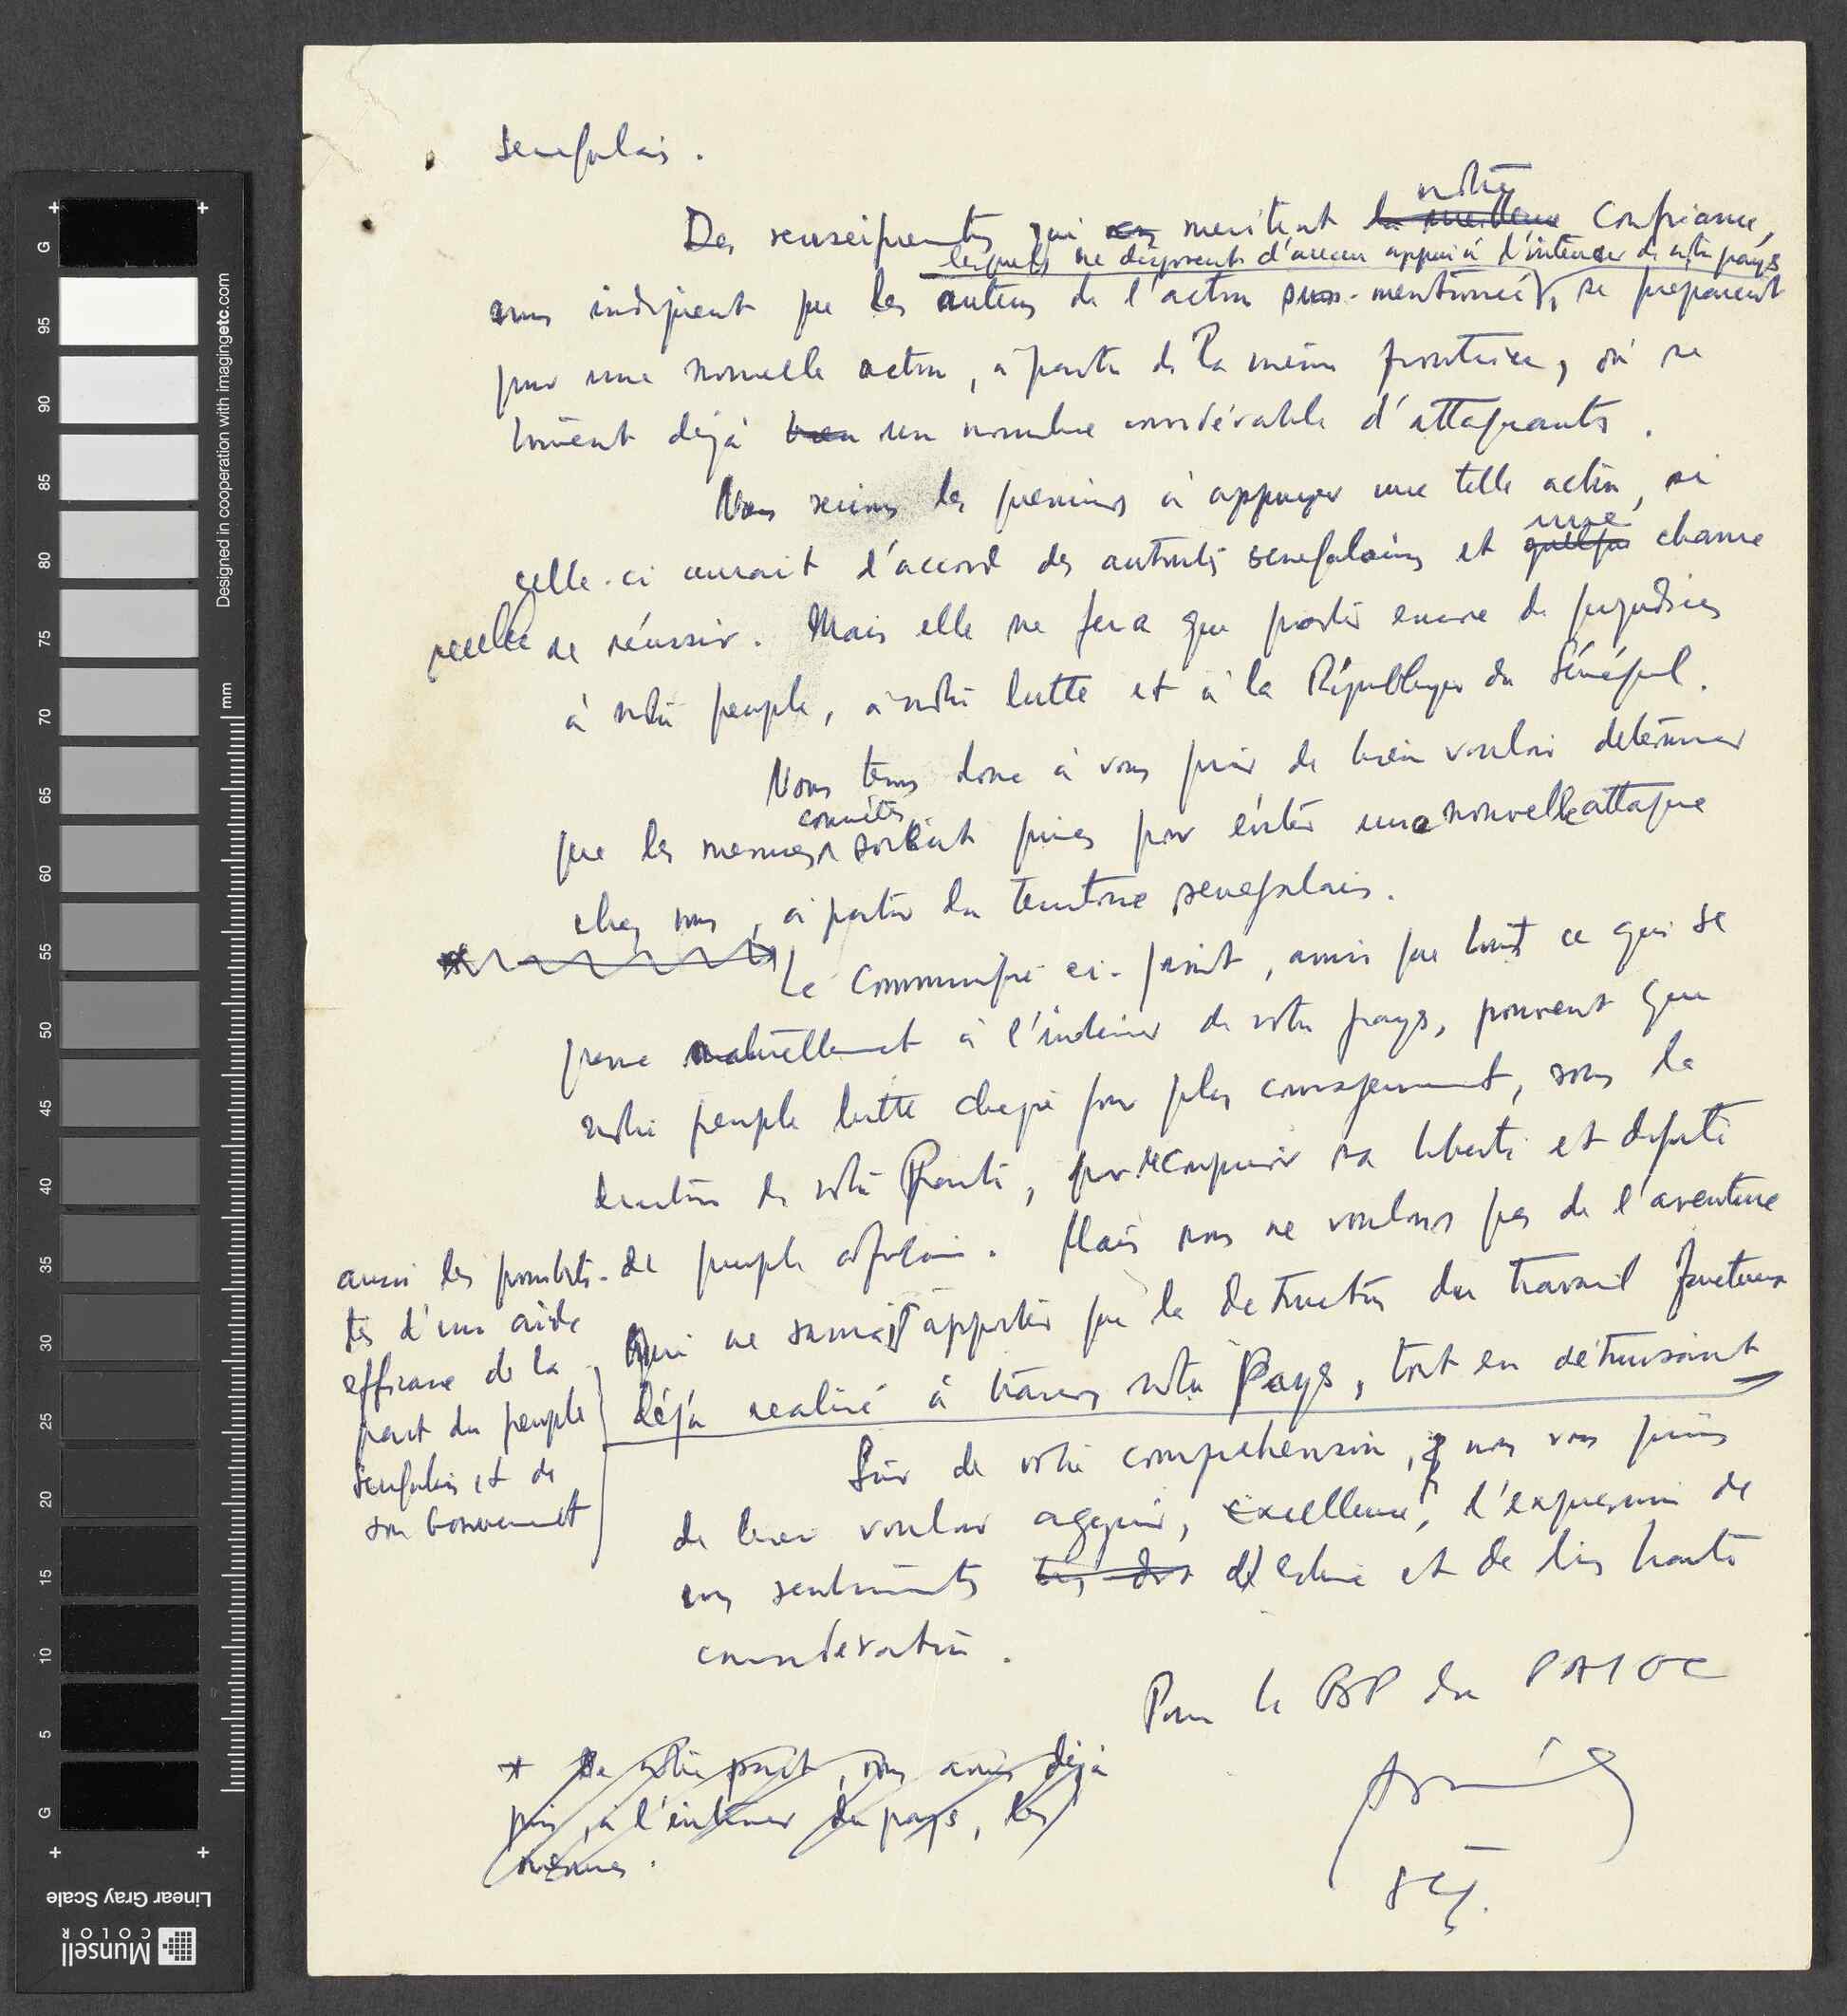 senegalais.
notre
Des renseignements qui meritent la meilleure confiance,
lesquels ne disposent d'aucun appui à l'intérieur de notre pays
nous indiquent que les auteurs de l'action sus-mentionnée, se preparent
pour une nouvelle action, à partir de la même frontière, où se
trouvent déjà bien un nombre considérable d'attaquants.
Nous serions les premiers à appuyer une telle action, si
une
celle-ci aurait l'accord des autorités senegalaises et quelque chance
reelle de réussir. Mais elle ne fera que porter encore de prejudices
à notre peuple, à notre lutte et à la République du Sénégal.
Nous tenons donc à vous prier de bien vouloir déterminer
concrètes
que les mesures soient prises pour éviter une nouvelle attaque
chez nous, à partir du territoire senegalais.
Le communiqué ci-joint, ainsi que tout ce qui se
passe actuellement à l'intérieur de notre pays, prouvent que
notre peuple lutte chaque jour plus courageusement, sous la
direction de notre Parti, pour reconquerir sa liberté et dignité
de peuple africain. Mais nous ne voulons pas de l'aventure
qui ne saurait apporter que la destruction du travail fructueux
déjà realisé à travers notre Pays, tout en détruisant
aussi les possibili-
tés d'une aide
efficace de la
part du peuple
senegalais et de
son Gouvernement
Sûr de votre comprehension, nous vous prions
de bien vouloir agréer, Excellence, l'expression de
nos sentiments d'estime et de très haute
consideration.
Pour le BP du PAIGC
* De notre part, nous avons déjà
pris, à l'intérieur du pays, les
mesures.
SG.
Designed in cooperation with imagingetc.com
mm
G 95 90 85 80 75 70 65 60 55 50 45 40 35 30 25 20 15 10 5 G
Linear Gray Scale
Munsell
COLOR